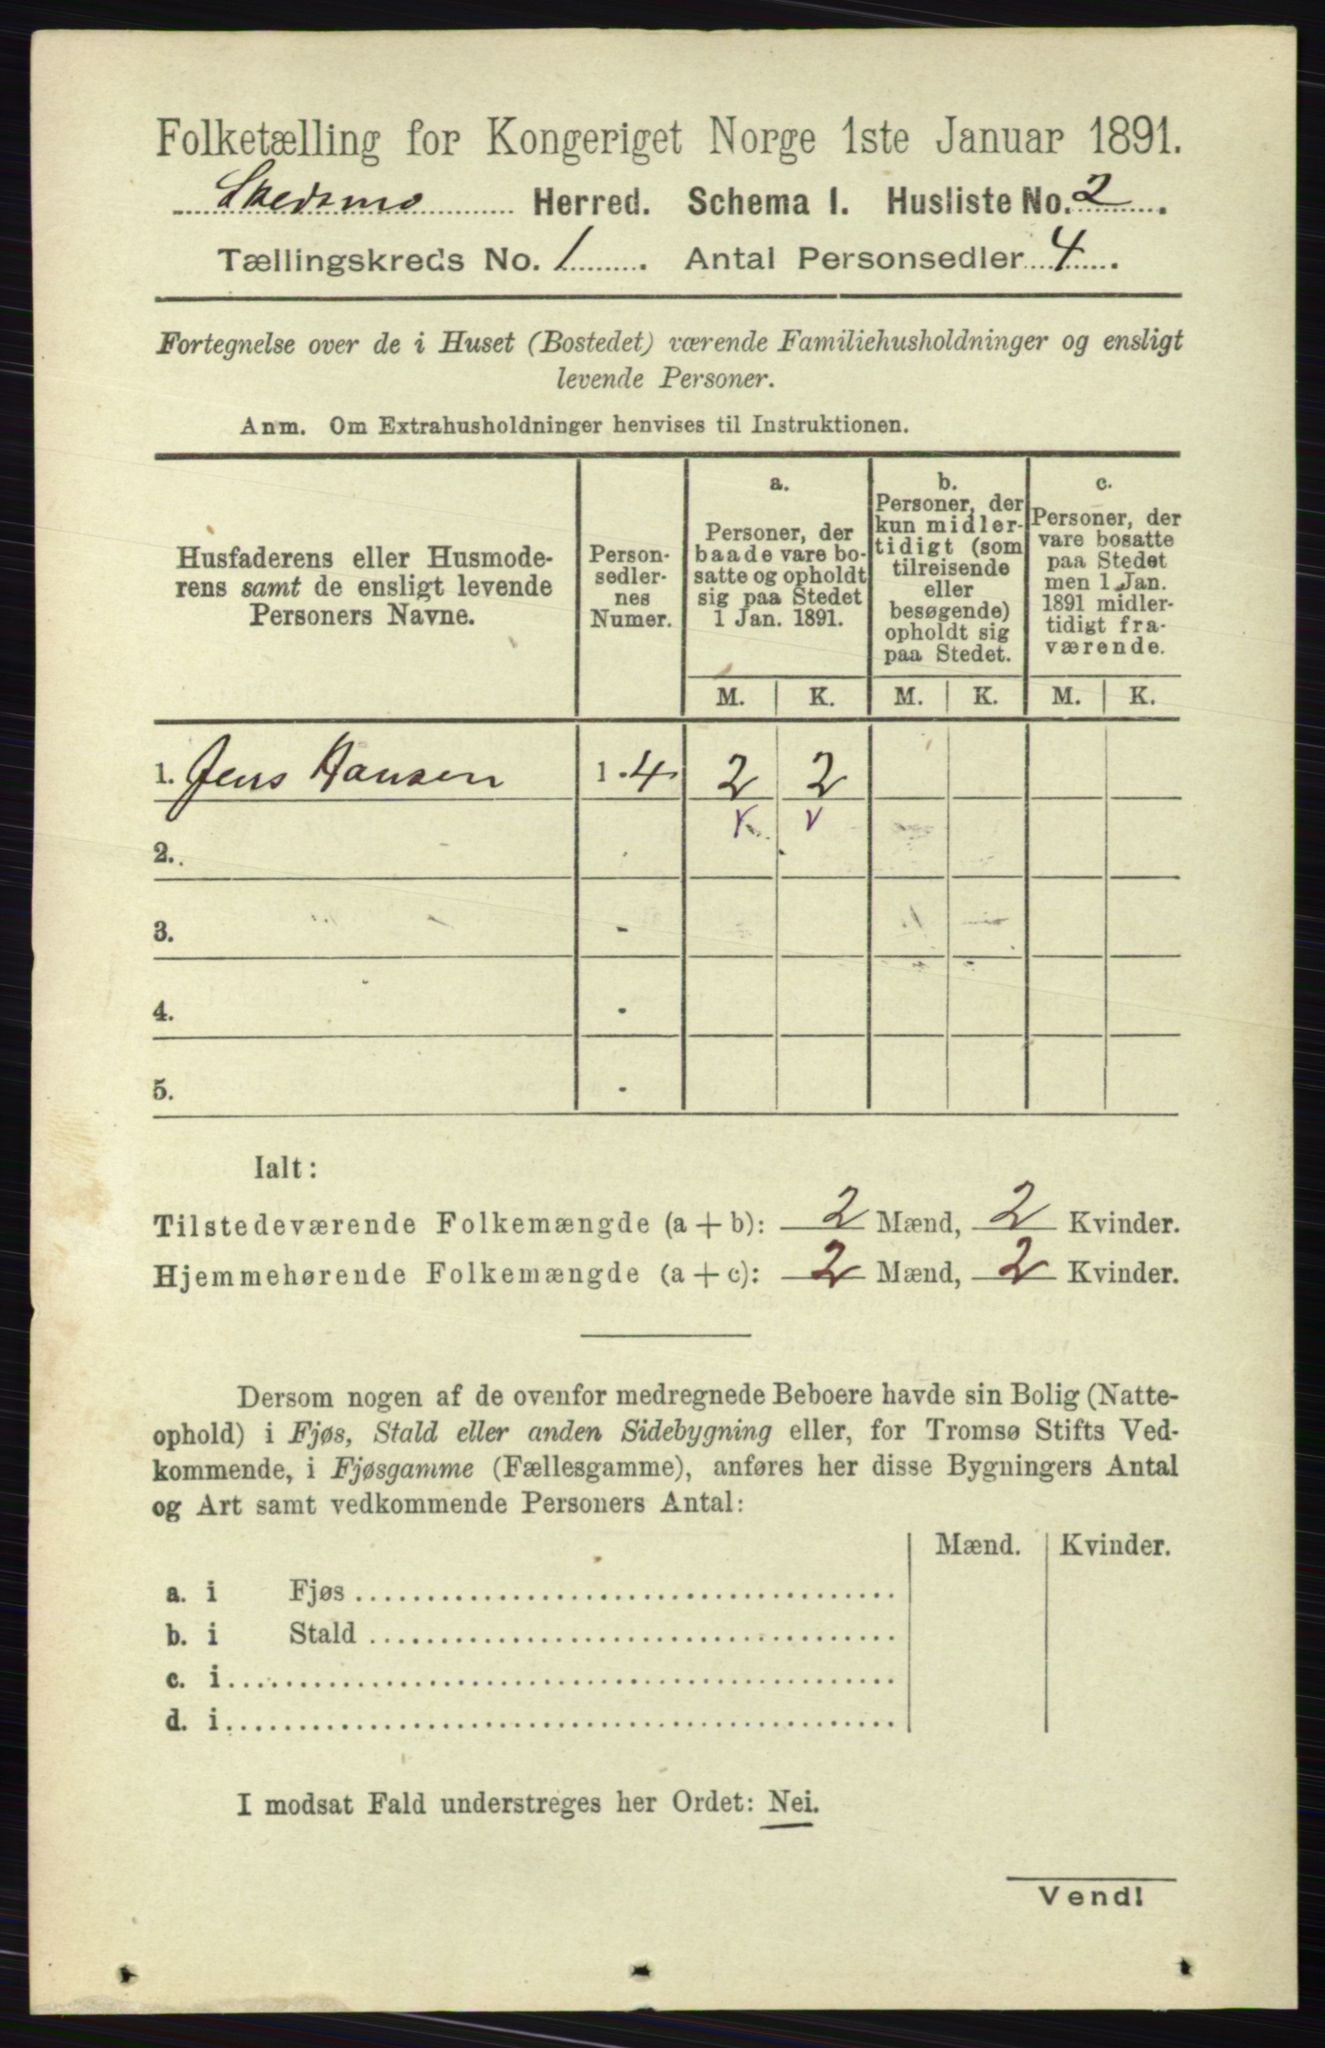 Folketælling for Kongeriget Norge 1ste Januar 1891.
Skedsmo Herred. Schema I. Husliste No. 2.
Tællingskreds No. 1. Antal Personsedler 4.
Fortegnelse over de i Huset (Bostedet) værende Familiehusholdninger og ensligt
levende Personer.
Anm. Om Extrahusholdninger henvises til Instruktionen.
Husfaderens eller Husmode-
rens samt de ensligt levende
Personers Navne.
Person-
sedler-
nes
Numer.
a.
Personer, der
baade vare bo-
satte og opholdt
sig paa Stedet
1 Jan. 1891.
b.
Personer, der
kun midler-
tidigt (som
tilreisende
eller
besøgende)
opholdt sig
paa Stedet.
c.
Personer, der
vare bosatte
paa Stedet
men 1 Jan.
1891 midler-
tidigt fra-
værende.
M. K. M. K. M. K.
1. Jens Hansen 1-4 2 2
v v
2.
3. -
4. -
5. -
Ialt:
Tilstedeværende Folkemængde (a + b): 2 Mænd, 2 Kvinder.
Hjemmehørende Folkemængde (a + c): 2 Mænd, 2 Kvinder.
Dersom nogen af de ovenfor medregnede Beboere havde sin Bolig (Natte-
ophold) i Fjøs, Stald eller anden Sidebygning eller, for Tromsø Stifts Ved-
kommende, i Fjøsgamme (Fællesgamme), anføres her disse Bygningers Antal
og Art samt vedkommende Personers Antal:
Mænd. Kvinder.
a. i Fjøs
b. i Stald
c. i
d. i
I modsat Fald understreges her Ordet: Nei.
Vend!